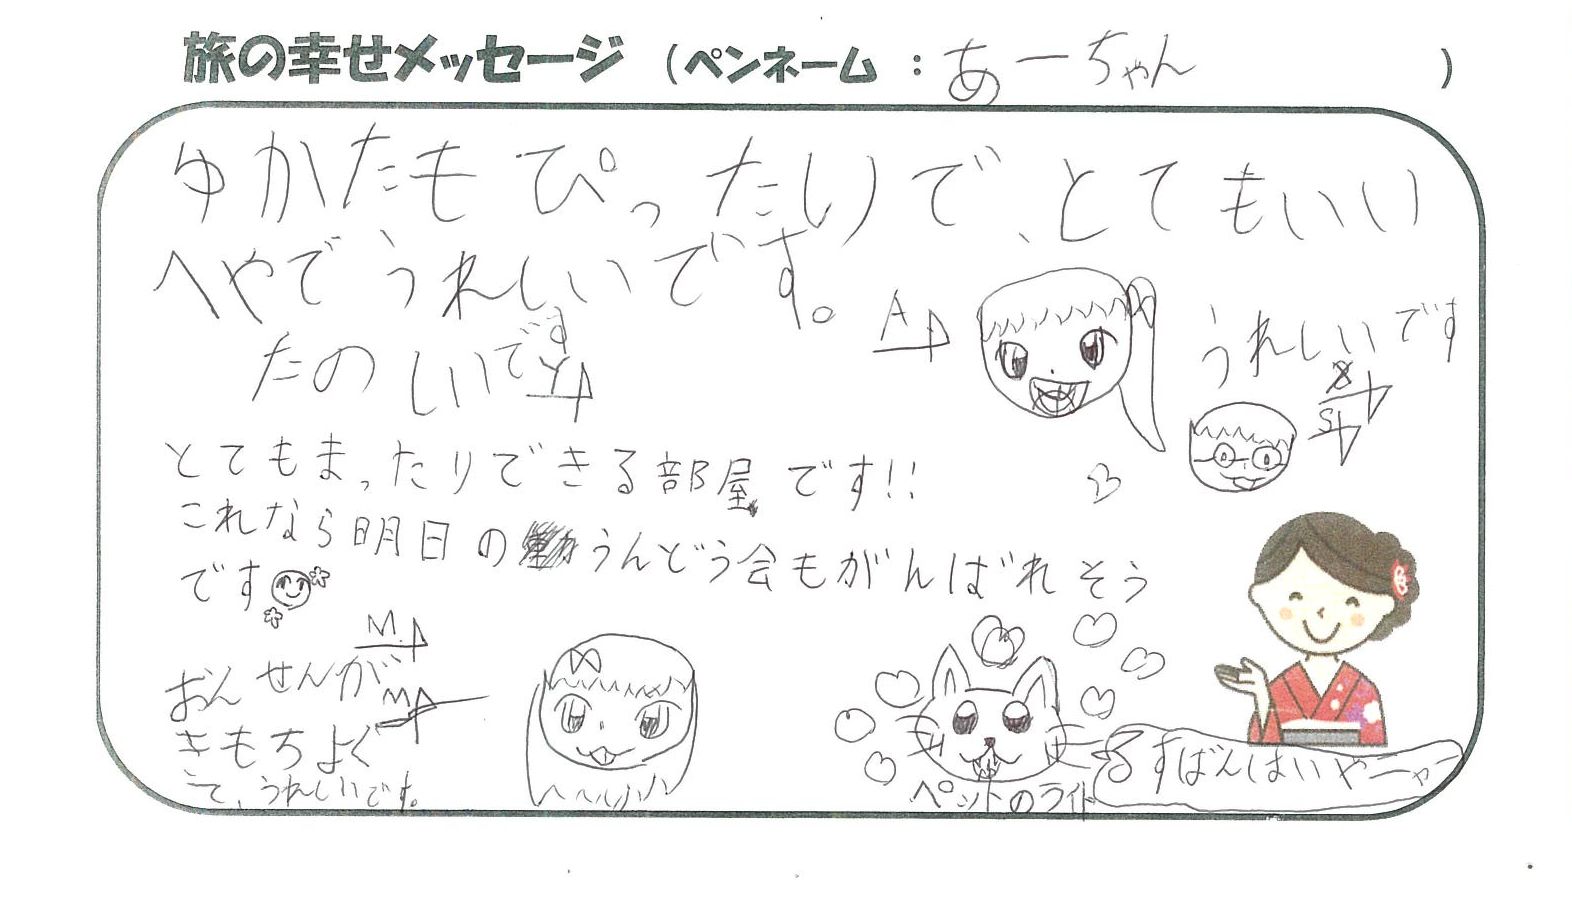 旅の幸せメッセージ (ペンネーム : あーちゃん )
ゆかたもぴったりで、とてもいい
へやでうれしいです。
A
うれしいです
S
たのしいです
Y
とてもまったりできる部屋です!!
これなら明日のうんどう会もがんばれそう
です
M.
おんせんが
M
きもちよく
て、うれしいです。
ペットのライト
るすばんはいやニャー